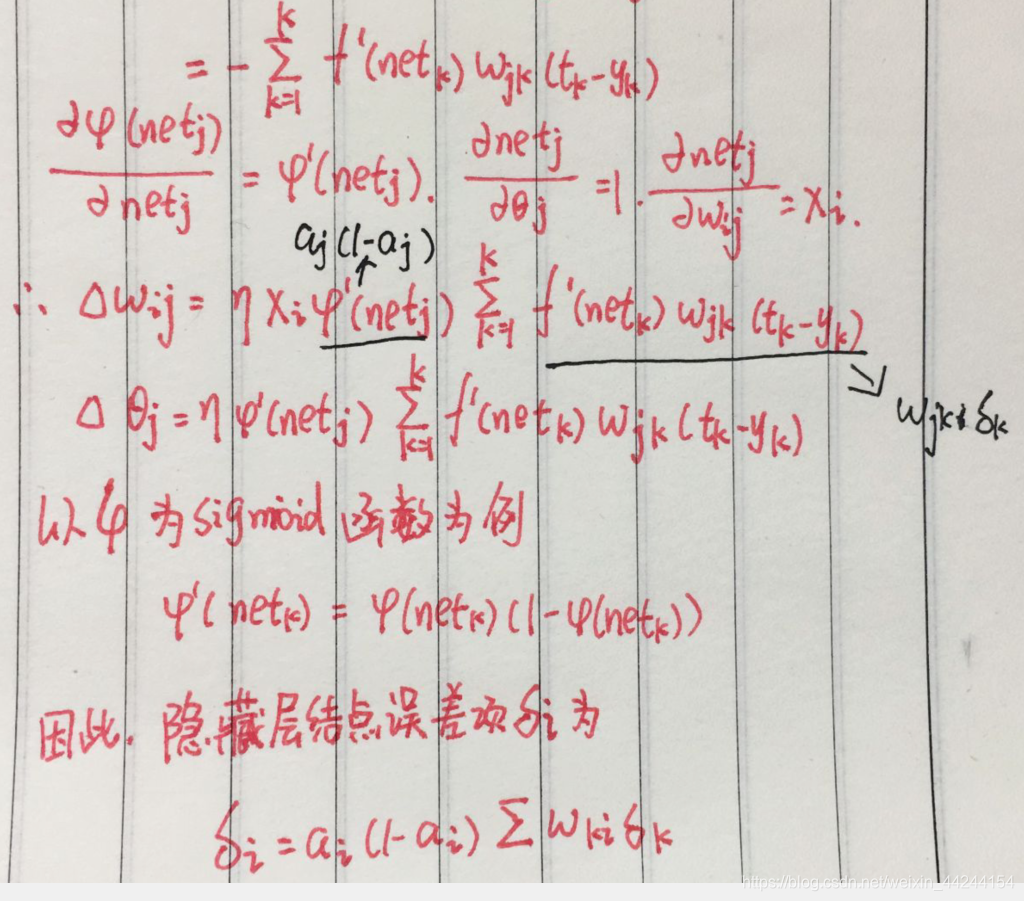 = - ∑_{k=1}^{k} f'(net_k) w_{jk} (t_k-y_k)
∂φ(net_j)/∂net_j = φ'(net_j). ∂net_j/∂θ_j = 1. ∂net_j/∂w_{ij} = x_i.
a_j(1-a_j)
↑
∴ Δw_{ij} = η x_i φ'(net_j) ∑_{k=1}^{k} f'(net_k) w_{jk} (t_k-y_k)
↘
w_{jk} δ_k
Δθ_j = η φ'(net_j) ∑_{k=1}^{k} f'(net_k) w_{jk} (t_k-y_k)
以φ为sigmoid函数为例
φ'(net_k) = φ(net_k)(1-φ(net_k))
因此. 隐藏层结点误差项δ_i为
δ_i = a_i(1-a_i) ∑ w_{ki} δ_k
https://blog.csdn.net/weixin_44244154